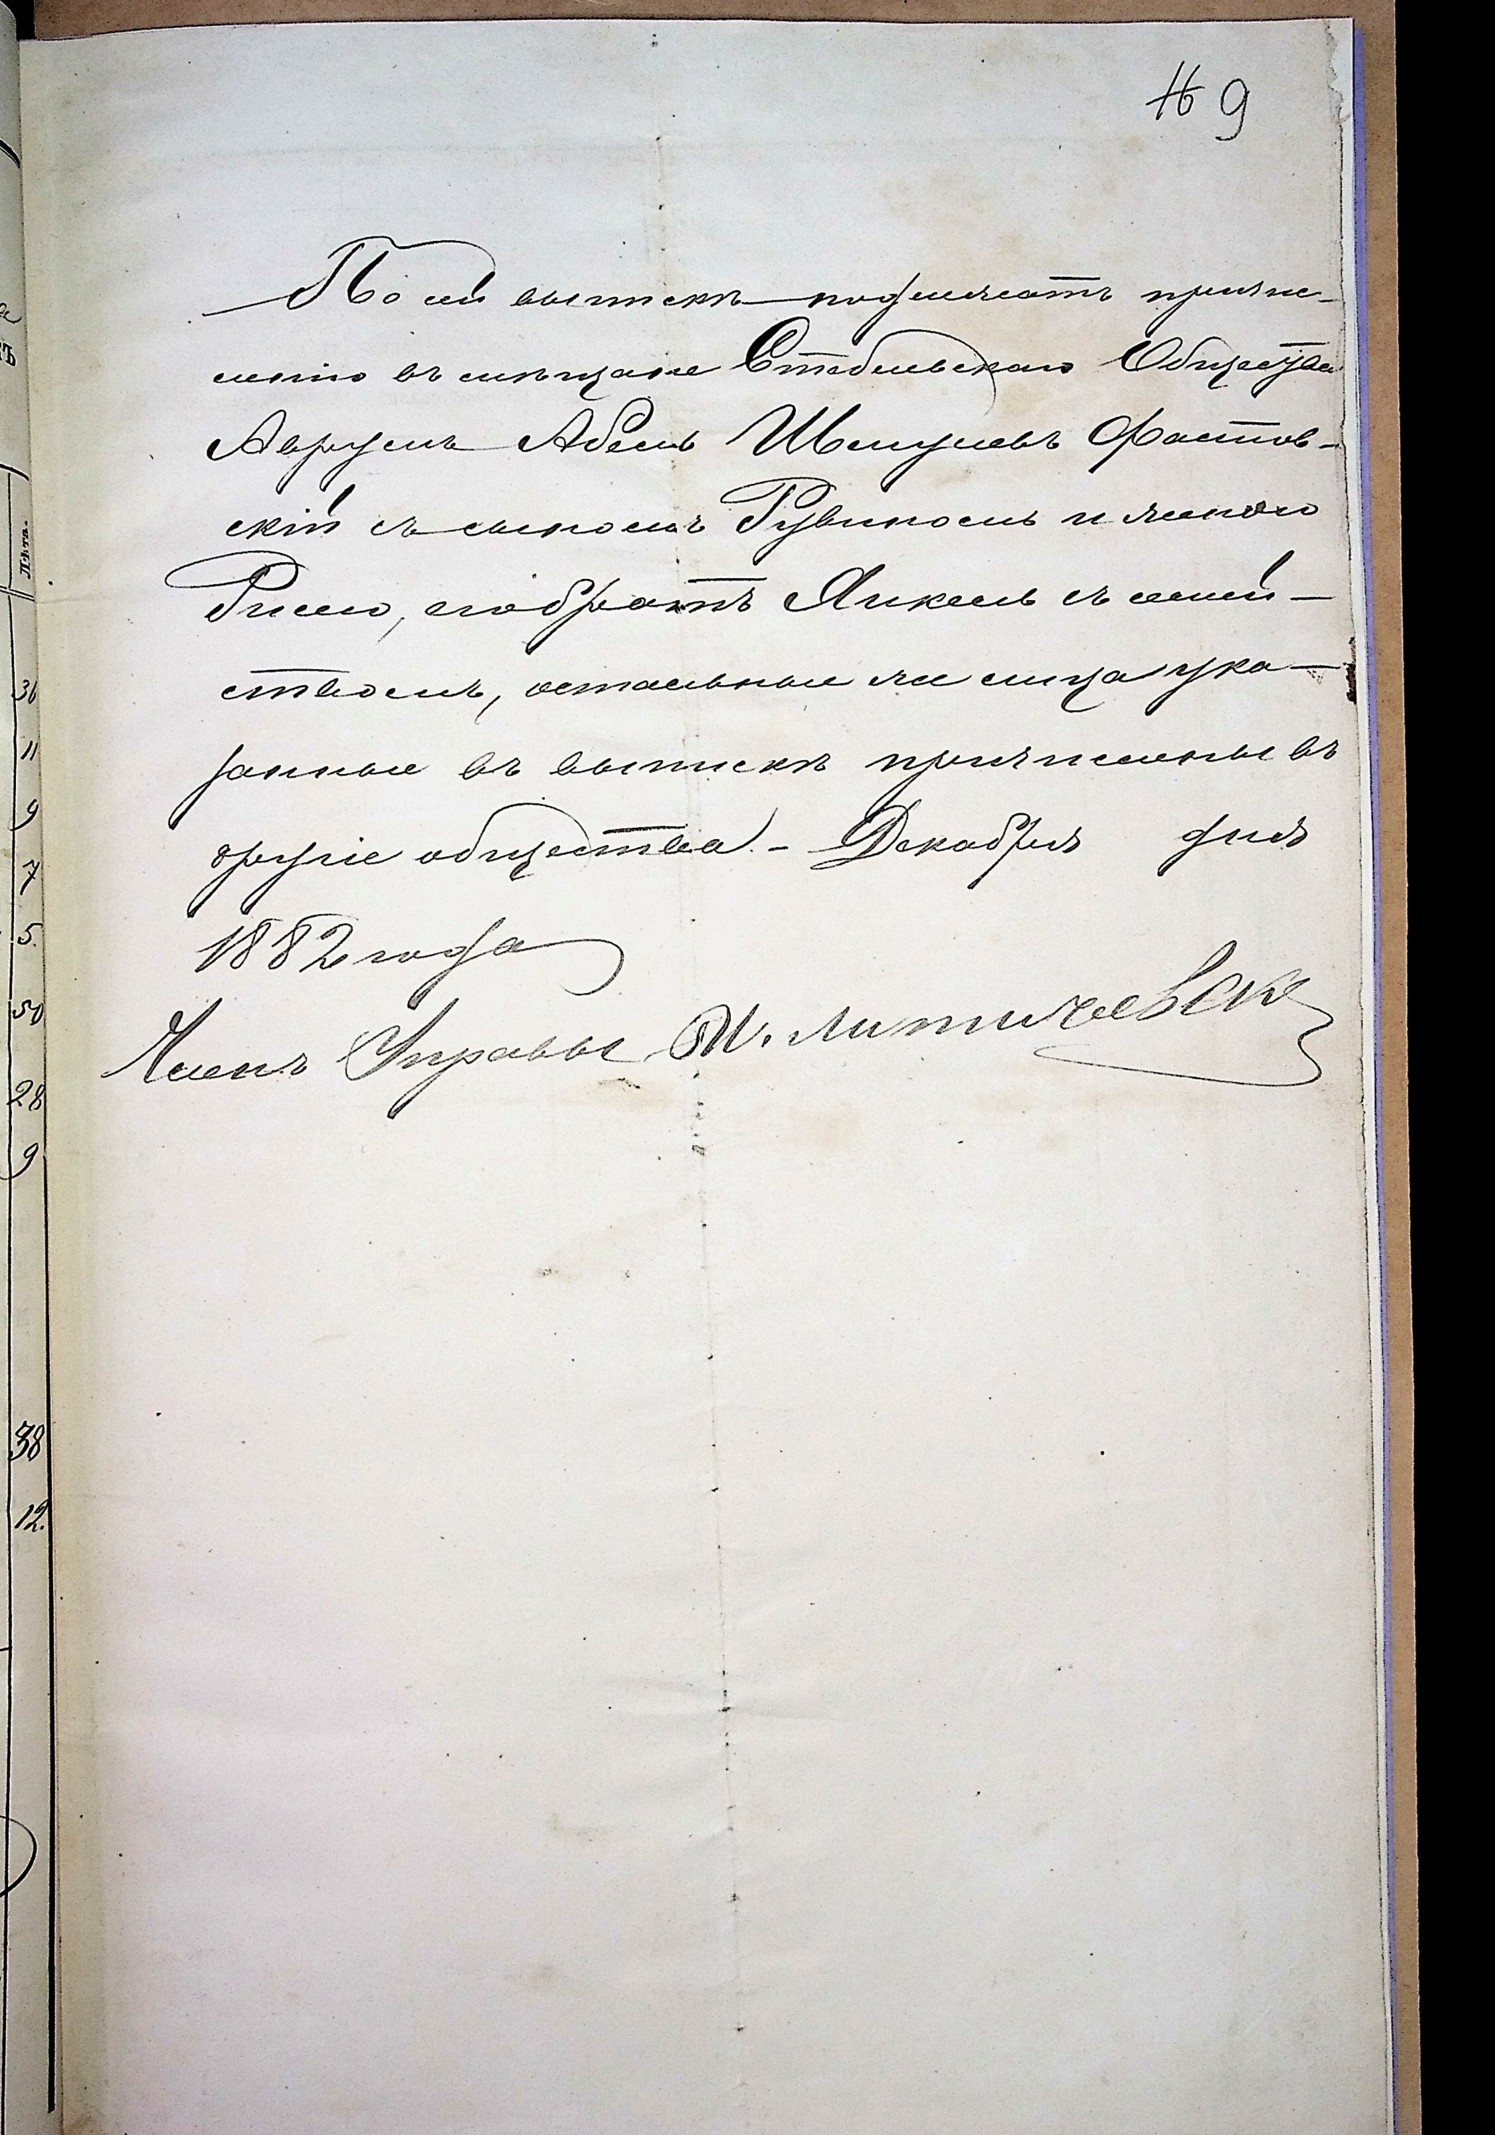 16 9
По сей выпискѣ подлежатъ причис-
ленію въ мѣщане Стеблевскаго Общества
Аврумъ Абель Шмулевъ Фастов-
скій съ сыномъ Рувиномъ и женою
Рисею, его братъ Янкель съ семей-
ствомъ, остальные же лица ука-
занные въ выпискѣ причислены въ
другіе общества. - Декабря дня
1882 года
Членъ Управы
36
11
9
7
5.
50
28
9
38
12.